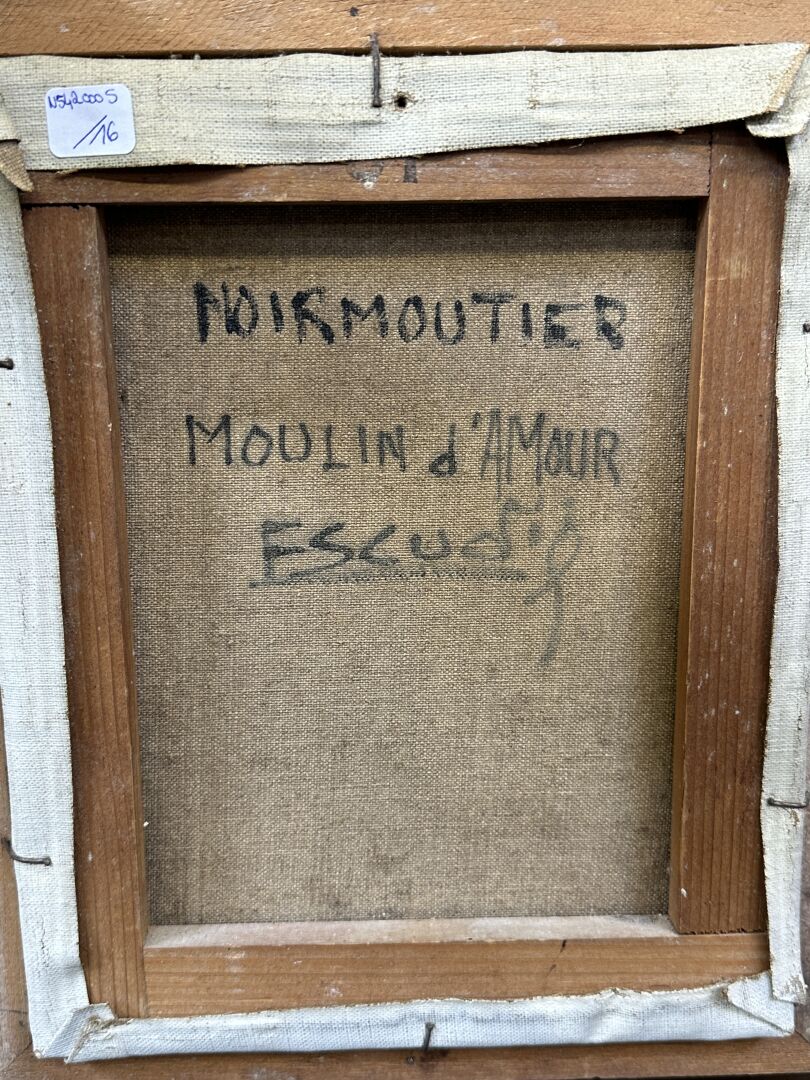 N542000S
/16
NOIRMOUTIER
MOULIN d'AMOUR
ESCUdié